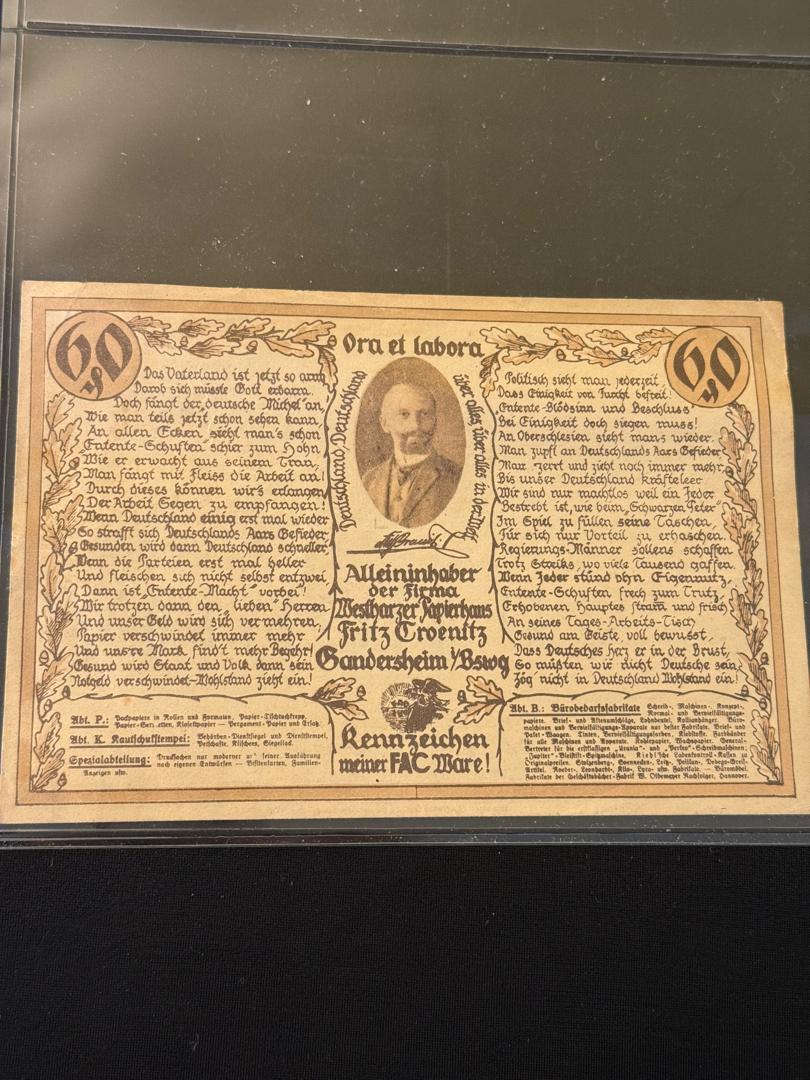 60
Ora et labora
60
Das Vaterland ist jetzt so arm,
Darob sich müsste Gott erbarm.
Doch fängt der „deutsche Michel" an,
Wie man teils jetzt schon sehen kann,
An allen Ecken sieht man's schon
Entente-Schuften schier zum Hohn
Wie er erwacht aus seinem Tran,
Man fängt mit Fleiss die Arbeit an!
Durch dieses können wir's erlangen
Der Arbeit Segen zu empfangen!
Wenn Deutschland einig erst mal wieder
So strafft sich Deutschlands Aars Gefieder,
Gesunden wird dann Deutschland schneller,
Wenn die Parteien erst mal heller
Und fleischen sich nicht selbst entzwei,
Dann ist „Entente-Macht" vorbei!
Wir trotzen dann den „lieben" Herren
Und unser Geld wird sich vermehren,
Papier verschwindet immer mehr
Und unsre Mark find't mehr Begehr!
Gesund wird Staat und Volk dann sein
Notgeld verschwindet-Wohlstand zieht ein!
Deutschland, Deutschland
über alles, über alles in der Welt
Alleininhaber
der Firma
Westharzer Papierhaus
Fritz Croenitz
Gandersheim i/Bswg
Kennzeichen
meiner FAC Ware!
Politisch sieht man jederzeit,
Dass Einigkeit von Furcht befreit!
Entente-Blödsinn und Beschluss
Bei Einigkeit doch siegen muss!
An Oberschlesien sieht mans wieder.
Man zupft an Deutschlands Aars Gefieder
Man zerrt und zieht noch immer mehr,
Bis unser Deutschland kräfteleer
Wir sind nur machtlos weil ein Jeder
Bestrebt ist, wie beim „Schwarzen Peter"
Im Spiel zu füllen seine Taschen,
Für sich nur Vorteil zu erhaschen.
Regierungs-Männer sollens schaffen
Trotz Streiks, wo viele Tausend gaffen.
Wenn Jeder stünd ohn Eigennutz,
Entente-Schuften frech zum Trutz
Erhobenen Hauptes stramm und frisch
An seines Tages-Arbeits-Tisch
Gesund am Geiste voll bewusst,
Dass Deutsches Herz er in der Brust,
So müssten wir nicht Deutsche sein,
Zög nicht in Deutschland Wohlstand ein!
Abt. P.: Packpapiere in Rollen und Formaten, Papier-Tischtuchkrepp,
Papier-Servietten, Klosettpapier — Pergament-Papier und Ersatz.
Abt. K. Kautschukstempel: Behörden-Dienstsiegel und Dienststempel,
Petschafte, Klischees, Siegellack.
Spezialabteilung: Drucksachen nur moderner u. feiner Ausführung
nach eigenen Entwürfen — Visitenkarten, Familien-
Anzeigen usw.
Abt. B.: Bürobedarfsfabrikate Schreib-, Maschinen-, Konzept-,
Normal- und Vervielfältigungs-
papiere. Brief- und Aktenumschläge, Lohnbeutel, Rollianhänger. Büro-
maschinen und Vervielfältigungs-Apparate nur bester Fabrikate. Brief- und
Paket-Waagen. Tinten, Vervielfältigungsfarben, Klebstoffe, Farbbänder
für alle Maschinen und Apparate. Kohlepapier, Wachspapier. General-
Vertreter für die erstklassigen „Urania"- und „Perkeo"-Schreibmaschinen;
„Jupiter"-Bleistift-Spitzmaschine,
Originalpreisen. Stolzenberg-, Soennecken-, Leitz-, Pelikan-,
Fabrikate der Geschäftsbücher-Fabrik W. Oldemeyer Nachfolger, Hannover.